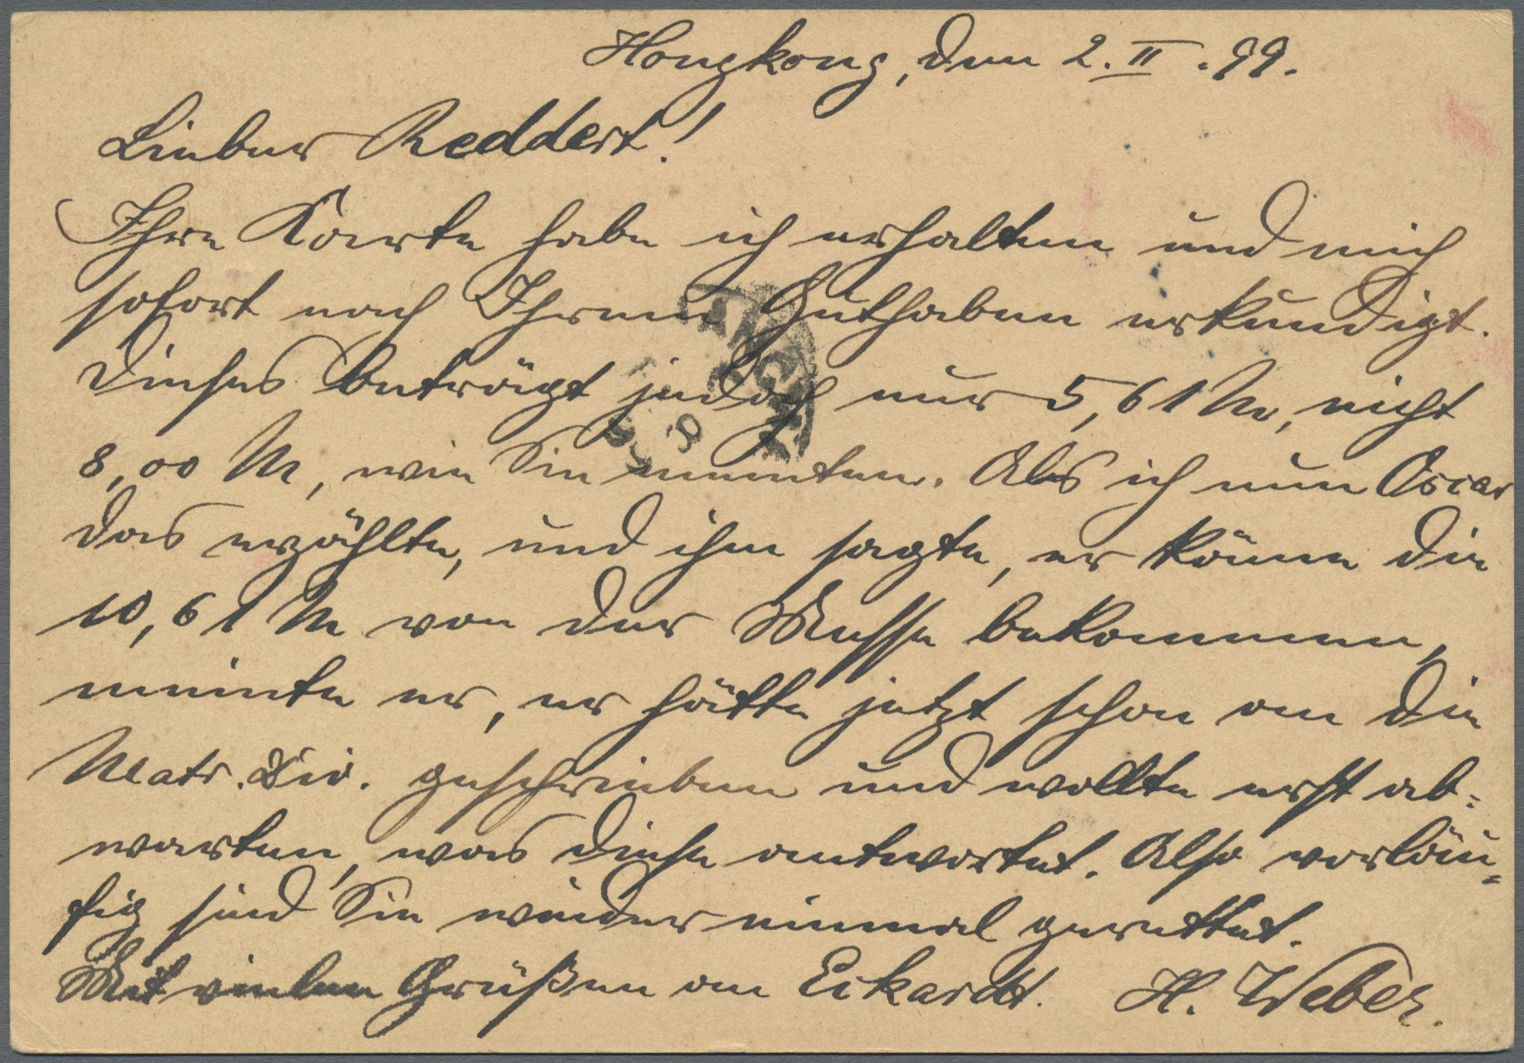 Hongkong, den 2. II. 99.
Lieber Reddert!
Ihre Karte habe ich erhalten und mich
sofort nach Ihrem Guthaben erkundigt.
Dieses beträgt jedoch nur 5,61 M, nicht
8,00 M, wie Sie meinten. Als ich nun Oscar
das erzählte, und ihm sagte, er könne die
10,61 M von der Messe bekommen,
meinte er, er hätte jetzt schon an die
Matr. Div. geschrieben und wollte erst ab-
warten, was diese antwortet. Also vorläu-
fig sind Sie wieder einmal gerettet.
Mit vielen Grüßen an Eckardt. H. Weber.